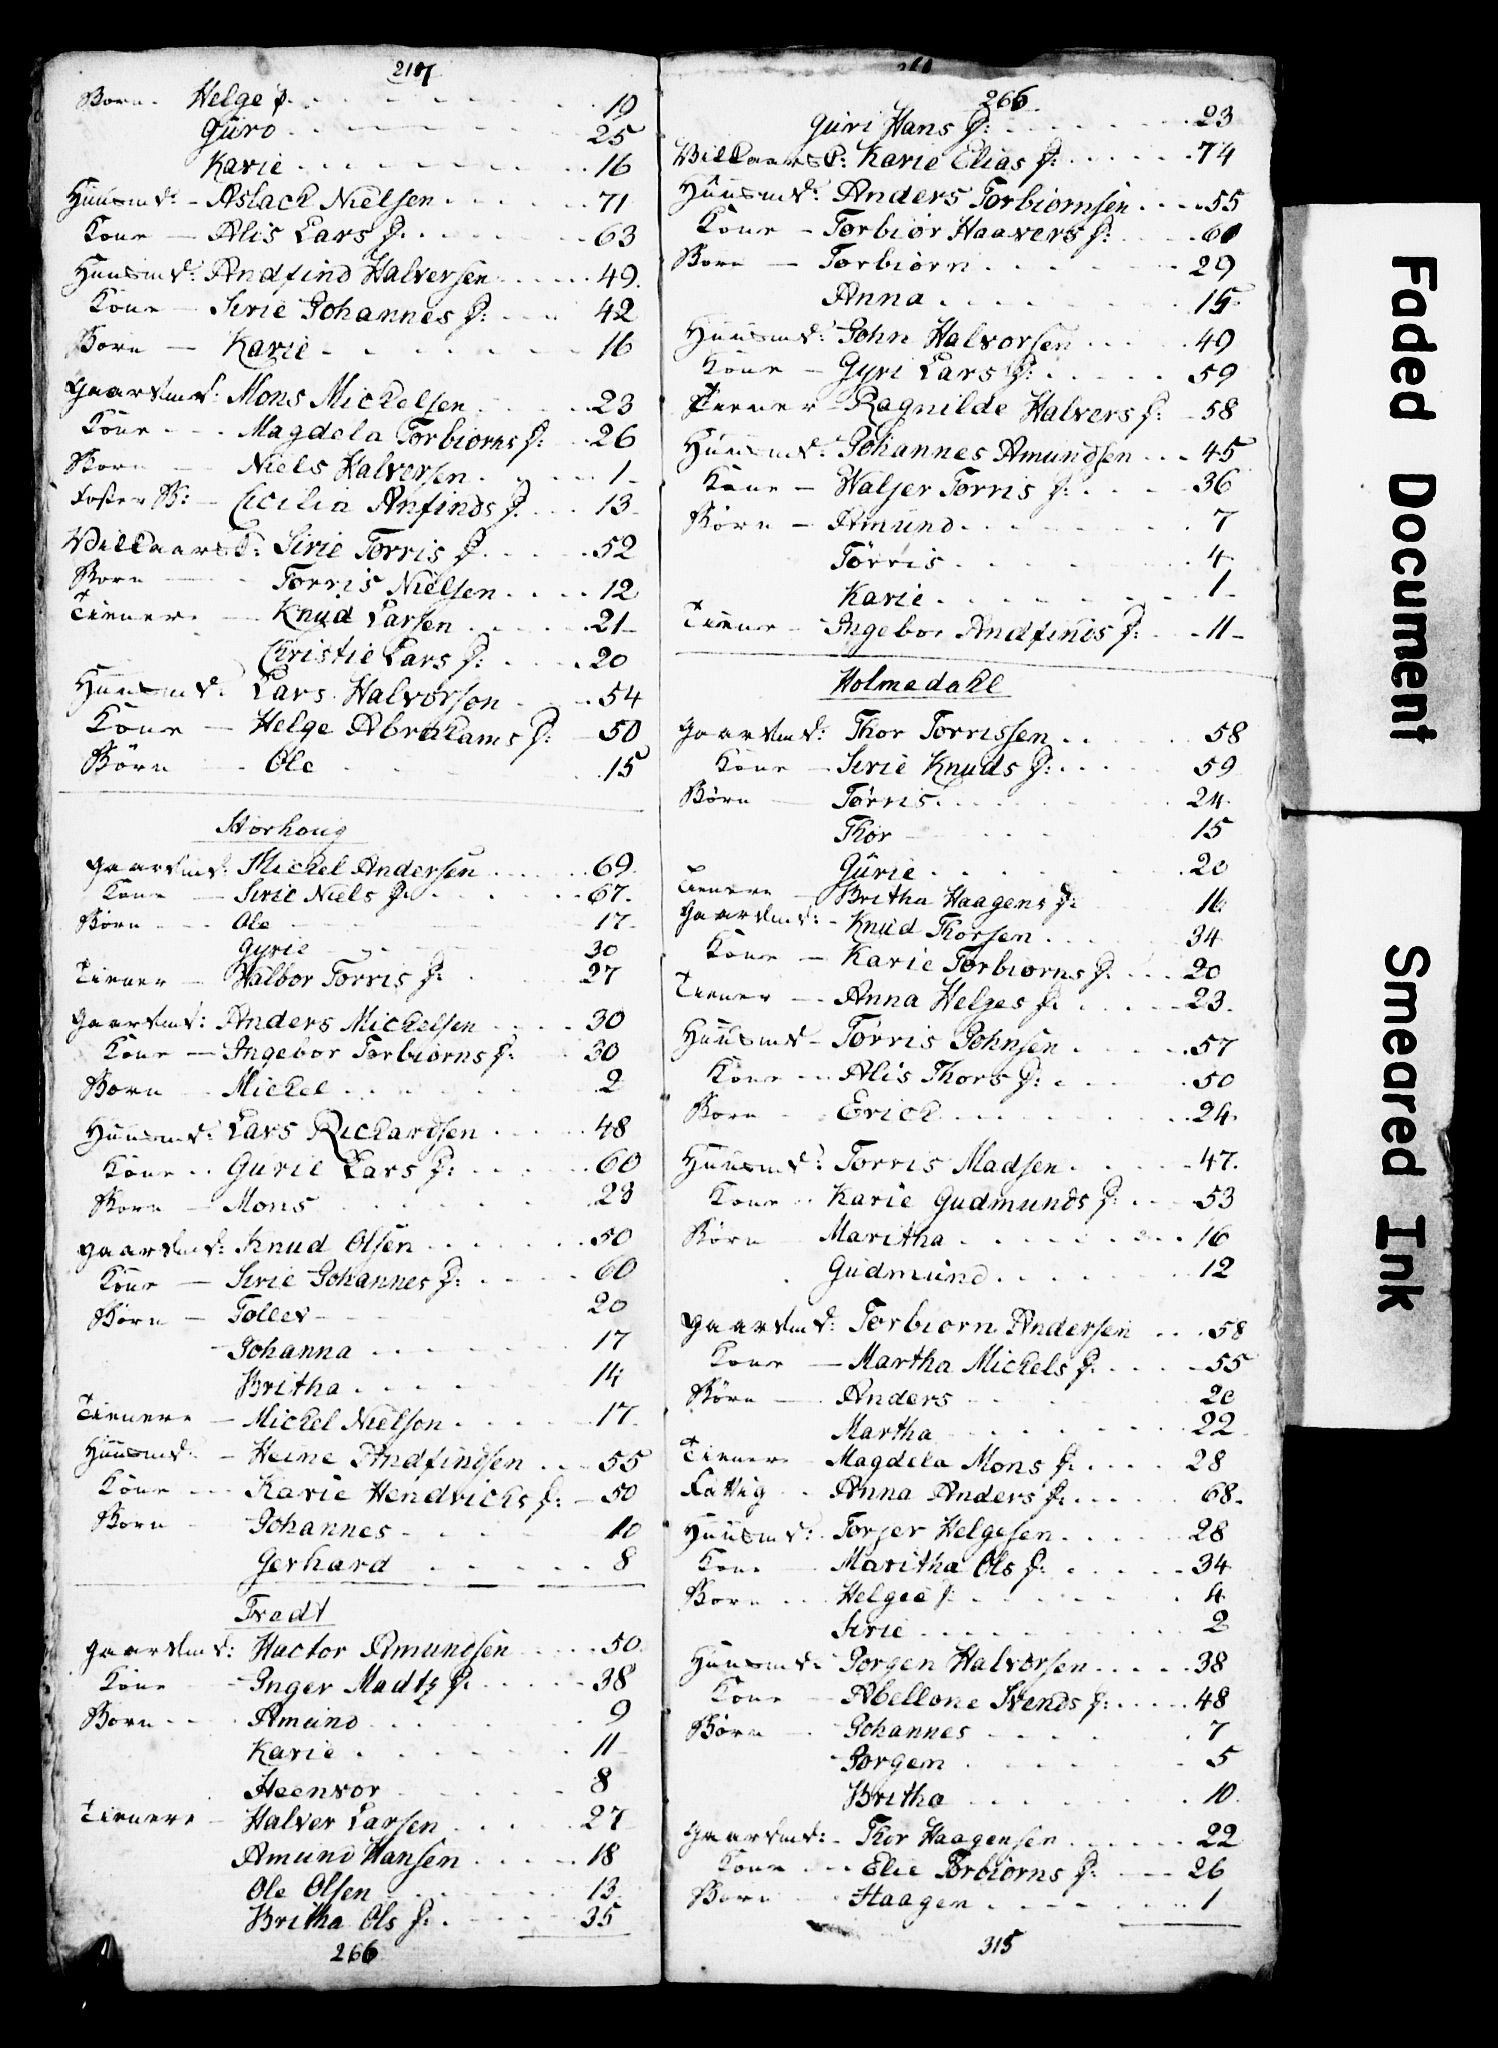 Born. Helge D. 19
Guro 25
Karie 16
Huusmd: - Aslach Nielsen 71
Kone - Alis Lars D. 63
Huusmd: Andfind Halversen 49.
Kone - Sirie Johannes D: 42
Born - Karie 16
Gaardmd: Mons Mickelsen 23
Kone - Magdela Torbiorns D: 26
Born - Niels Halversen 1
Foster B: - Cicilia Anfinds D 13
Villaarsf: Sirie Torris D 52
Born - Torris Nielsen 12
Tienere - Knud Larsen 21
Christie Lars D: 20
Huusmd: Lars Halvorson 54
Kone - Helge Abrahams D: 50
Börn - Ole 15
Storhoug
Gaardmd: Mickel Andersen 69
Kone - Sirie Niels D. 67
Börn - Ole 17
Gyrie 30
Tiener - Walbor Torris D: 27
Gaardmd: Anders Mickelsen 30
Kone - Ingebor Torbiorns D: 30
Born - Mickel 2
Huusmd: Lars Rickardsen 48
Kone - Gurie Lars D: 60
Born - Mons 23
Gaardmd: Knud Olsen 50
Kone - Sirie Johannes D: 60
Börn - Tollev 20
Johanna 17
Britha 14
Tienere - Mickel Nielson 17
Huusmd: - Heine Andfindsen 55
Kone - Karie Hendricks D: 50
Born Johannes 10
Gerhard 8
Tradt
Gaardmd: Hactor Amundsen 50
Kone - Inger Madtz D. 38
Born - Amund 9
Karie 11
Heenvor 8
Tienere - Halver Larsen 27
Amund Hansen 18
Ole Olsen 13
Britha Ols D: 35
266
266
Guri Hans D: 23
Villaarsf: Karie Elias D: 74
Huusmd: Anders Torbiornsen 55
Kone - Torbior Haavers D: 60
Born - Torbiorn 29
Anna 15
Huusmd: John Halvorsen 49
Kone - Gyri Lars D: 59
Tiener - Ragnilde Halvers D: 58
Huusmd: Johannes Amundsen 45
Kone - Walger Torris D: 36
Börn - Amund 7
Törris 4
Karie 1
Tiener - Ingebor Andfinds D: 11
Holmedahl
Gaardmd: Thor Torrissen 58
Kone - Sirie Knuds D: 59
Börn - Törris 24
Thor 15
Gurie 20
Tienere - Britha Haagens D:
Gaardmd: - Knud Thorsen 34
Kone - Karie Torbiorns D. 20
Tiener - Anna Helges D. 23
Huusmd - Törris Johnsen 57
Kone - Alis Thors D: 50
Born Erick 24
Huusmd: Torris Madsen 47.
Kone Karie Gudmunds D: 53
Börn Maritha 16
Gudmund 12
Gaardmd: Torbiorn Andersen 58
Kone - Martha Mickels D. 55
Börn - Anders 20
Martha 22
Tienere Magdela Mons D. 28
Fattig Anna Anders D: 68
Huusmd: Torger Helgesen 28
Kone Maritha Ols D: 34
Born Helgee D: 4
Sirie 2
Huusmd: Jorgen Halvorsen 38
Kone - Abellone Svends D: 48
Börn - Johannes 7
Jorgem 5
Britha 10
Gaardmd: Thor Haagensen 22
Kone Elie Torbiorns D: 26
Born - Haagen 1
315
Faded Document
Smeared Ink